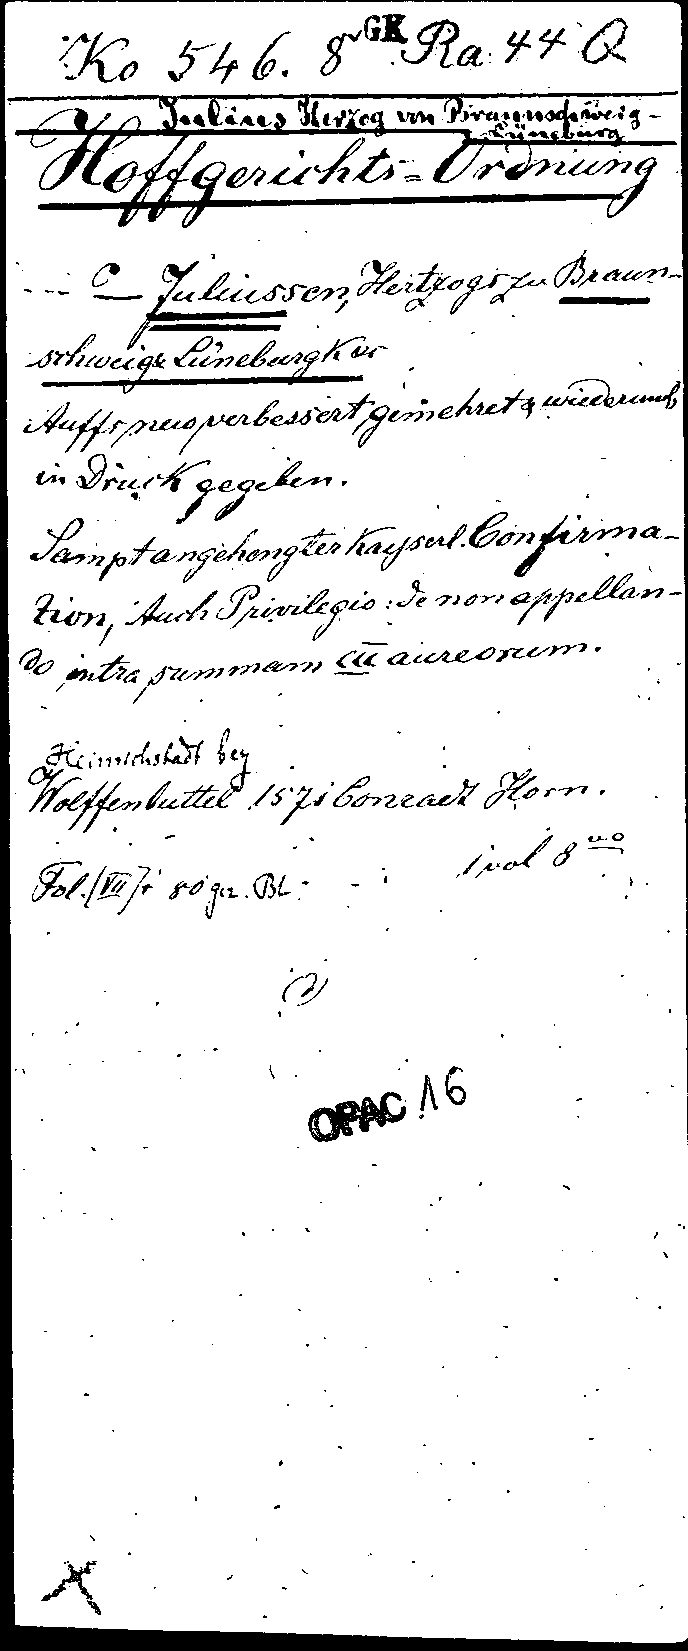 Ko 546. 8° GK Ra 44 Q
Julius Herzog von Braunschweig-
Lüneburg
Hoffgerichts-Ordnung
--- C — Juliussen, Hertzogs zu Braun-
schweig & Lüneburgk &c
Auffs neuo verbessert, gemehret & wiederumb
in Druck gegeben.
Sampt angehengter Kayserl. Confirma-
tion, Auch Privilegio: de non appellan-
do intra summam cc aureorum.
Heinrichstadt bey
Wolffenbuttel 1571 Conradt Horn.
Fol. [VII] + 80 gez. Bl. 1 vol 8vo
(2)
OPAC 16
X